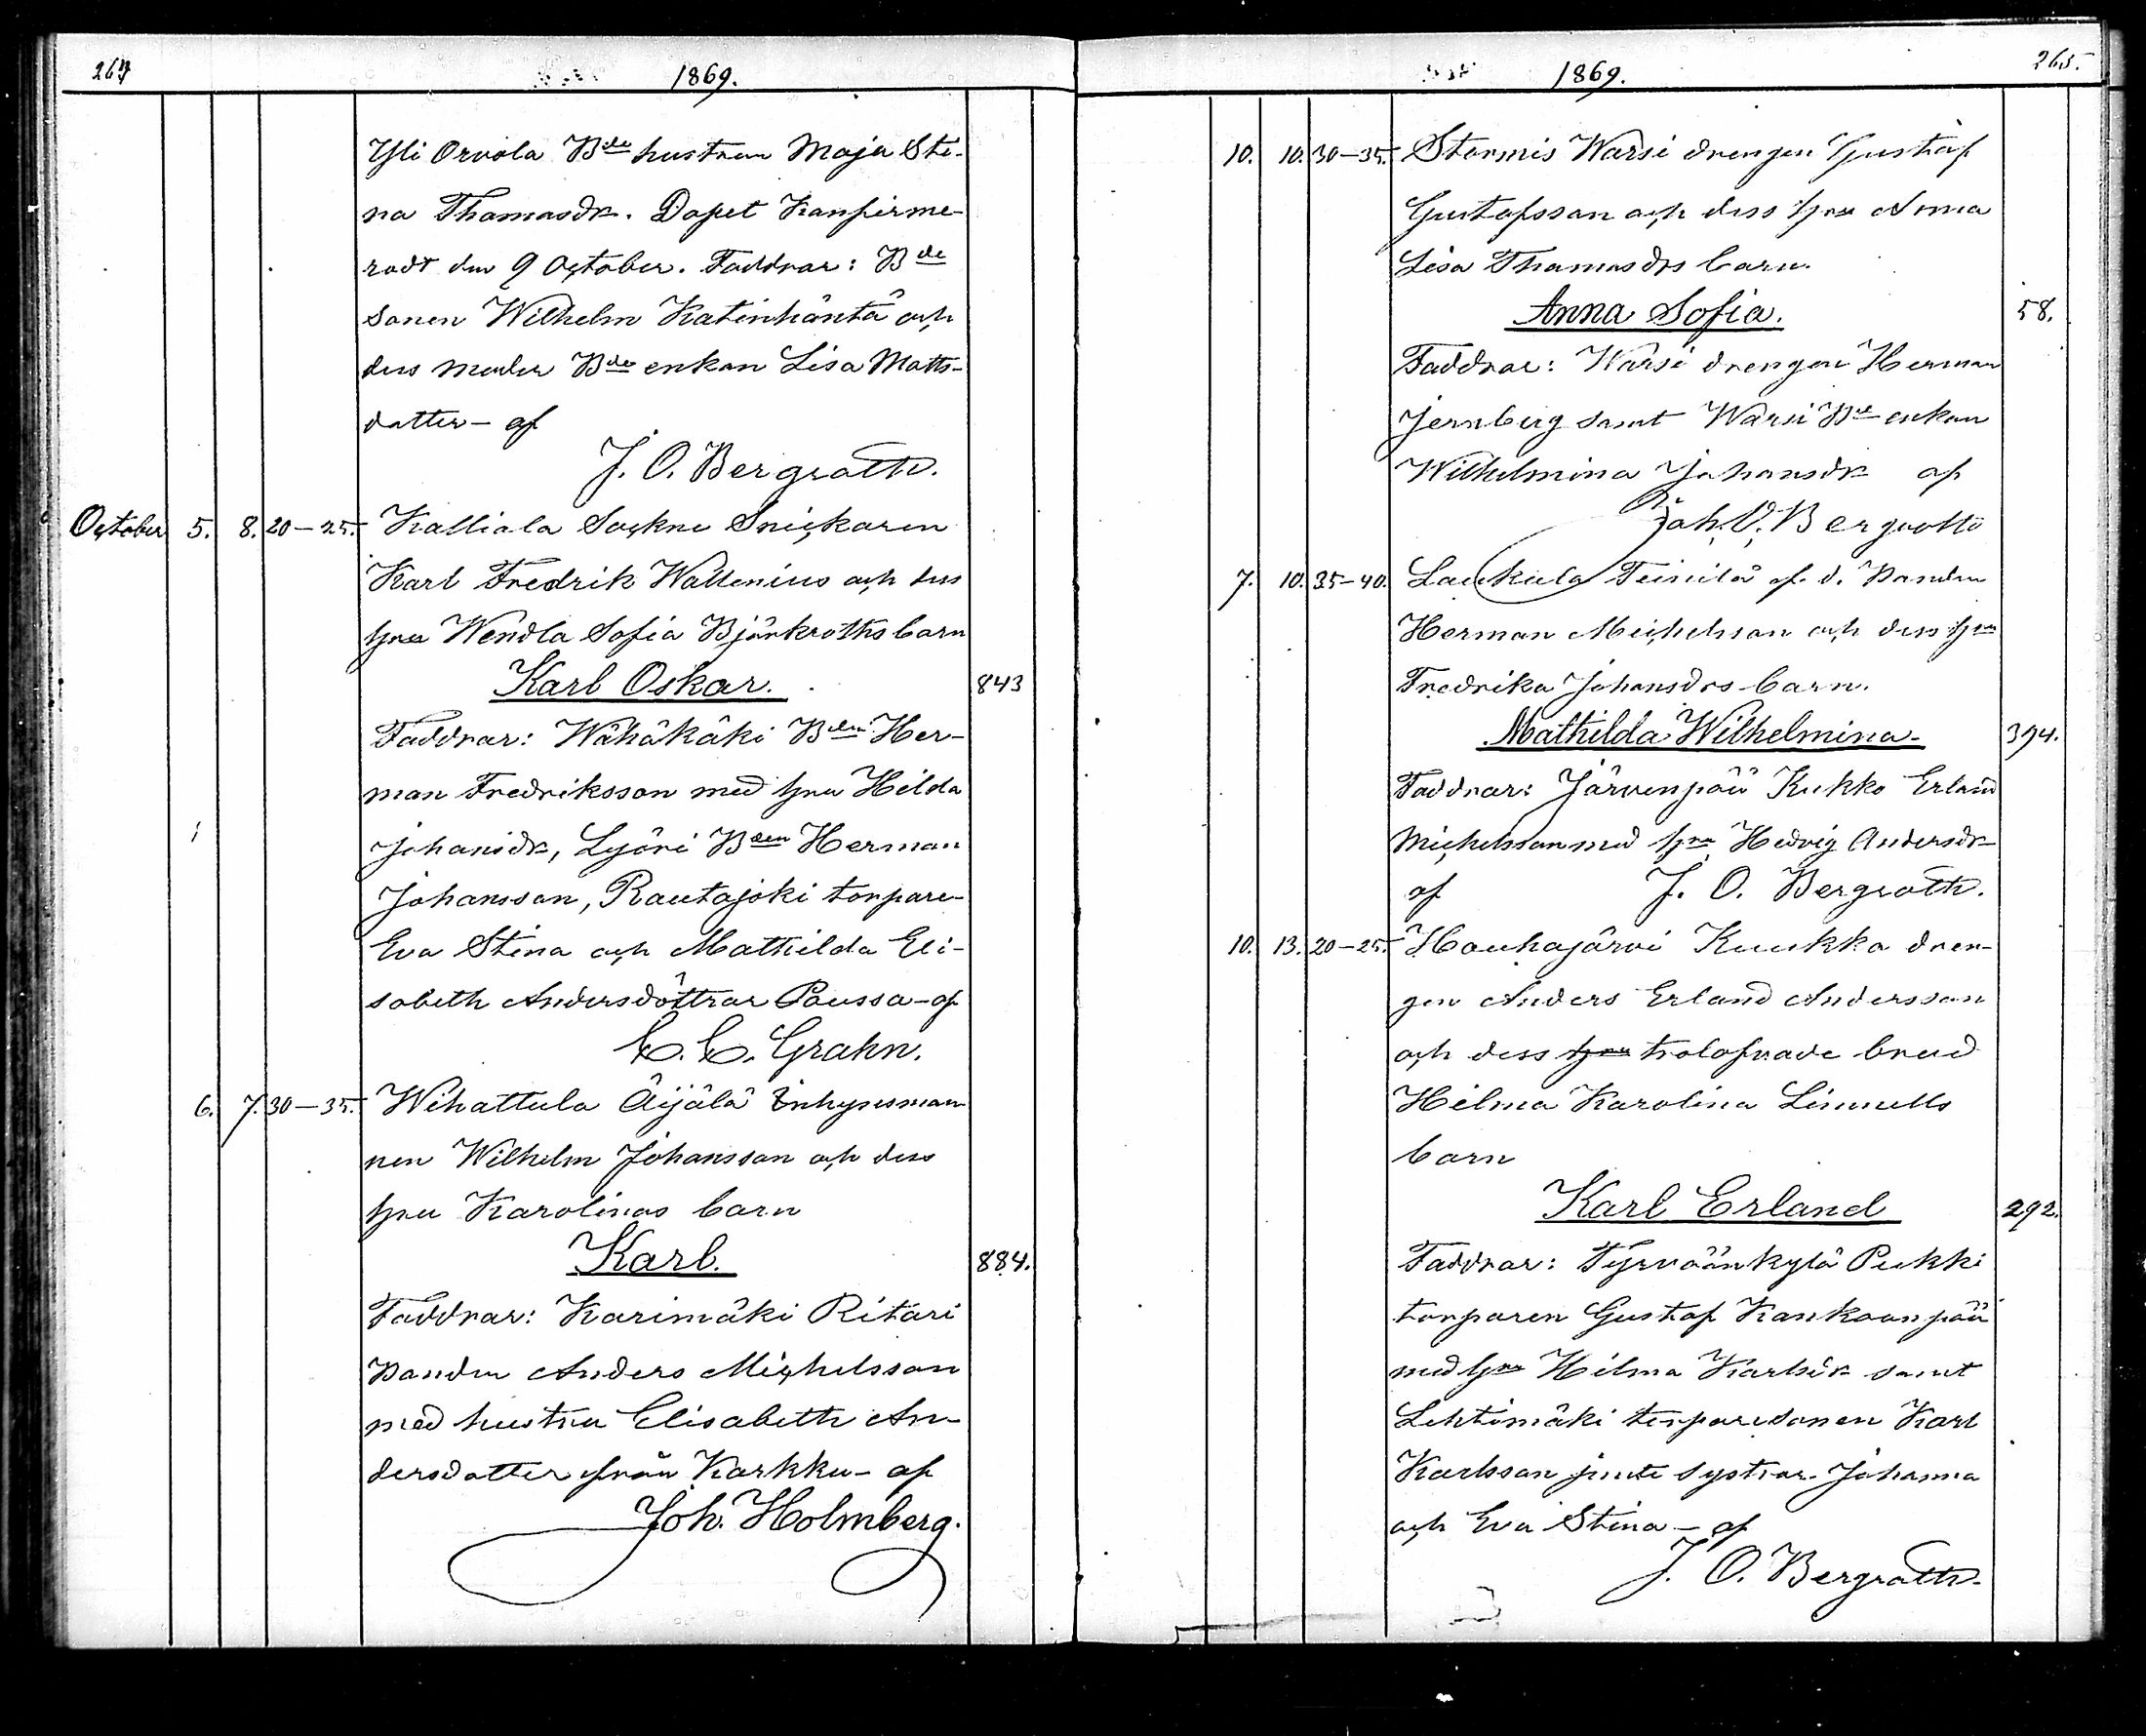 264
1869.
Yli Orvola Bde hustrun Maja Sti-
na Thomasdr. Dopet Konfirme-
radt den 9 October. Faddrar: Bde
sonen Wilhelm Katinhäntä och
dess moder Bde enkan Lisa Matts-
dotter - af
J. O. Bergroth.
October 5. 8. 20-25. Kalliala Sockne Snickaren
Karl Fredrik Wallenius och dess
hru Wendla Sofia Björkroths barn
Karl Oskar. 843
Faddrar: Wähäkäki Bden Her-
man Fredriksson med hru Hilda
Johansdr, Lyöri Bden Herman
Johansson, Rautajoki torpare-
Eva Stina och Mathilda Eli-
sabeth Andersdöttrar Poussa - af
C. C. Grahn.
6. 7. 30-35. Wihattula Äijälä Inhysesman-
nen Wilhelm Johansson och dess
hru Karolinas barn
Karl. 884.
Faddrar: Karimäki Ritari
Bonden Anders Michelsson
med hustru Elisabeth An-
dersdotter från Karkku - af
Joh. Holmberg.
265.
1869.
10. 10. 30-35. Stormis Warsi drengen Gustaf
Gustafsson och dess hru Anna
Lisa Thomasdrs barn.
Anna Sofia. 58.
Faddrar: Warsi drengen Herman
Jernberg samt Warsi Bde enkan
Wilhelmina Johansdr af
Joh. O. Bergroth
7. 10. 35-40. Laukula Teinilä f. d. Bonden
Herman Michelsson och dess hru
Fredrika Johansdrs barn.
Mathilda Wilhelmina. 394.
Faddrar: Järvenpää Kukko Erland
Michelsson med hru Hedvig Andersdr
af J. O. Bergroth.
10. 13. 20-25. Houhajärvi Kuukka dren-
gen Anders Erland Andersson
och dess hru trolofvade brud
Hilma Karolina Linnells
barn
Karl Erland 292.
Faddrar: Tyrväänkylä Pukki
torparen Gustaf Kankaanpää
med hru Hilma Karlsdr samt
Lehtimäki torparesonen Karl
Karlsson jemte systrar Johanna
och Eva Stina - af
J. O. Bergroth.